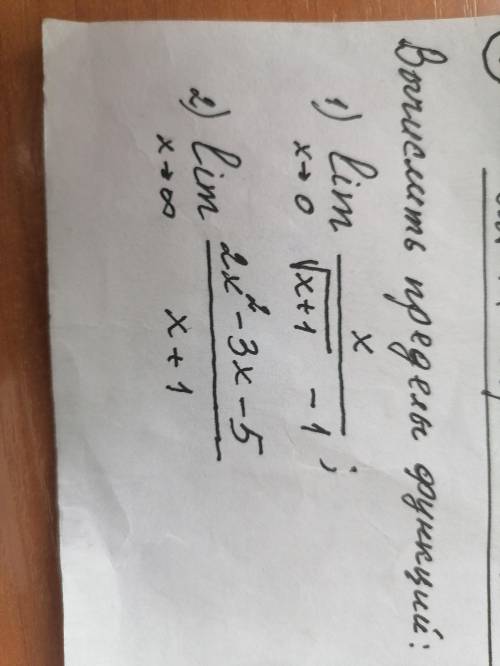 Вычислить пределы функций:
1) lim x→0 x / (√(x+1) - 1);
2) lim x→∞ (2x² - 3x - 5) / (x + 1)